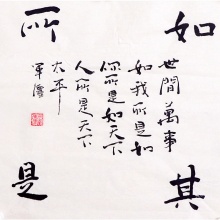 如其所是
世間萬事
如我所是如
你所是如天下
人所是天下
太平